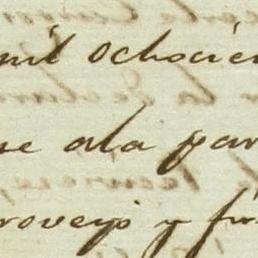 mil ochocien
se ala par
roveyó y fir